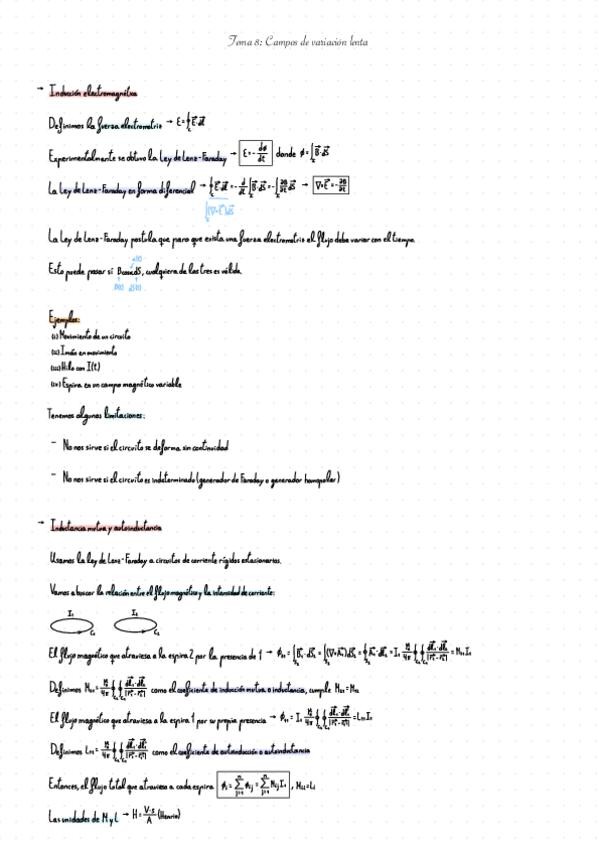 Tema 8: Campos de variación lenta
→ Inducción electromagnética
Definimos la fuerza electromotriz → ε = ∮_c E⃗·dl⃗
Experimentalmente se obtuvo la Ley de Lenz-Faraday → ε = - dφ/dt donde φ = ∫_s B⃗·dS⃗
La Ley de Lenz-Faraday en forma diferencial → ∮_c E⃗·dl⃗ = - d/dt ∫_s B⃗·dS⃗ = - ∫_s ∂B⃗/∂t dS⃗ → ∇×E⃗ = - ∂B⃗/∂t
∫_s (∇×E⃗)dS⃗
La Ley de Lenz-Faraday postula que para que exista una fuerza electromotriz el flujo debe variar con el tiempo.
α(t)
Esto puede pasar si B cosα dS, cualquiera de las tres es válida.
B(t) dS(t)
Ejemplos:
(i) Movimiento de un circuito
(ii) Imán en movimiento
(iii) Hilo con I(t)
(iv) Espira en un campo magnético variable
Tenemos algunas limitaciones:
- No nos sirve si el circuito se deforma sin continuidad
- No nos sirve si el circuito es indeterminado (generador de Faraday o generador homopolar)
→ Inductancia mutua y autoinductancia
Usamos la ley de Lenz-Faraday a circuitos de corriente rígidos estacionarios.
Vamos a buscar la relación entre el flujo magnético y la intensidad de corriente:
I₁ I₂
C₁ C₂
El flujo magnético que atraviesa a la espira 2 por la presencia de 1 →
Definimos como el coeficiente de inducción mutua o inductancia, cumple M₁₂ = M₂₁
El flujo magnético que atraviesa a la espira 1 por su propia presencia →
Definimos como el coeficiente de autoinducción o autoinductancia
Entonces, el flujo total que atraviesa a cada espira
Las unidades de M y L → H = V·s/A (Henrio)